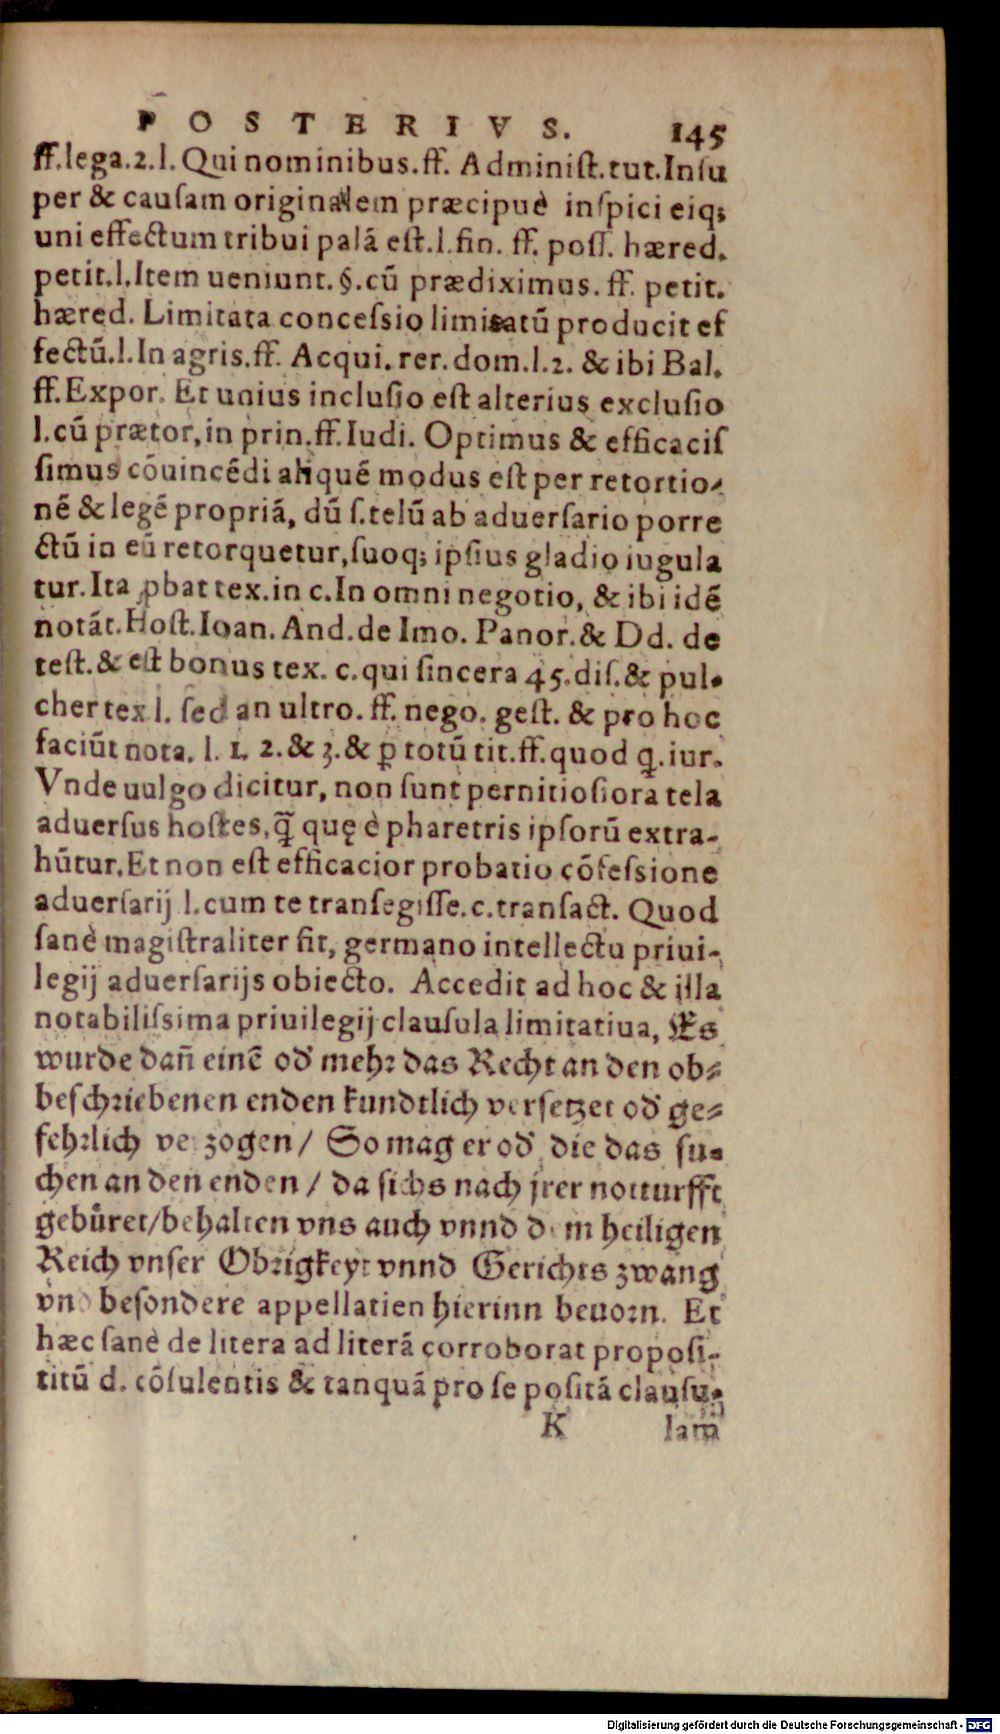 POSTERIVS. 145
ff. lega. 2. l. Qui nominibus. ff. Administ. tut. Insu
per & causam originalem præcipuè inspici eiq;
uni effectum tribui palã est. l. fin. ff. poss. hæred.
petit. l. Item ueniunt. §. cũ prædiximus. ff. petit.
hæred. Limitata concessio limitatũ producit ef
fectũ. l. In agris. ff. Acqui. rer. dom. l. 2. & ibi Bal.
ff. Expor. Et unius inclusio est alterius exclusio
l. cũ prætor, in prin. ff. Iudi. Optimus & efficacis
simus cõuincẽdi aliquẽ modus est per retortio-
nẽ & legẽ propriã, dũ s. telũ ab aduersario porre
ctũ in eũ retorquetur, suoq; ipsius gladio iugula
tur. Ita ꝓbat tex. in c. In omni negotio, & ibi idẽ
notãt. Host. Ioan. And. de Imo. Panor. & Dd. de
test. & est bonus tex. c. qui sincera 45. dis. & pul-
cher tex l. sed an ultro. ff. nego. gest. & pro hoc
faciũt nota. l. 1. 2. & 3. & ꝑ totũ tit. ff. quod q̃. iur.
Vnde uulgo dicitur, non sunt pernitiosiora tela
aduersus hostes, q̃ quę è pharetris ipsorũ extra-
hũtur. Et non est efficacior probatio cõfessione
aduersarij l. cum te transegisse. c. transact. Quod
sanè magistraliter fit, germano intellectu priui-
legij aduersarijs obiecto. Accedit ad hoc & illa
notabilissima priuilegij clausula limitatiua, Es
wurde dañ einẽ od' mehr das Recht an den ob-
beschriebenen enden kundtlich versetzet od' ge-
fehrlich verzogen / So mag er od' die das su-
chen an den enden / da sichs nach jrer notturfft
gebüret / behalten vns auch vnnd dem heiligen
Reich vnser Obrigkeyt vnnd Gerichts zwang
vnd besondere appellatien hierinn beuorn. Et
hæc sanè de litera ad literã corroborat proposi-
titũ d. cõsulentis & tanquã pro se positã clausu-
K lam
Digitalisierung gefördert durch die Deutsche Forschungsgemeinschaft - DFG